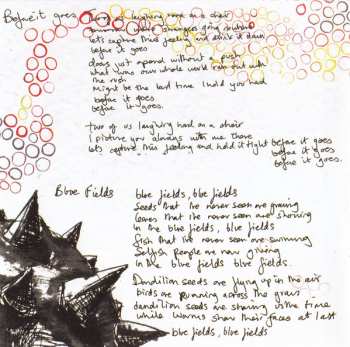 Before it goes
two of us laughing hard on a chair
tomorrow we're strangers going
let's capture this feeling and drink it down
before it goes
doors just opened without a push
what was our whole world ran out with
the rush
Might be the last time I hold you hard
before it goes
before it goes.
before it goes.
two of us laughing hard on a chair
I picture you always with me there
Lets capture this feeling and hold it tight before it goes
before it goes.
before it goes.
Blue Fields
blue fields, blue fields
Seeds that I've never seen are growing
Leaves that I've never seen are showing
In the blue fields, blue fields
Fish that I've never seen are swimming
Selfish people are now giving
In the blue fields blue fields.
Dandilion seeds are flying up in the air
birds are running across the grass
dandilion seeds are showing us the time
while worms show their faces at last
blue fields, blue fields